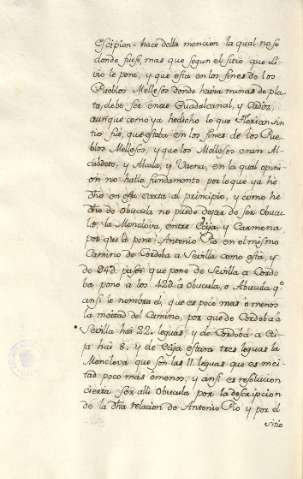 Escipion, hace della mencion la qual no sé
donde fuese, mas que segun el sitio que Li-
vio le pone, y que esta en los fines de los
Pueblos Mellesos donde havia minas de pla-
ta, debe ser entre Guadalcanal, y Cadiz,
aunque como ya he dicho lo que Florian sin-
tio fue, que estaba en los fines de los Pue-
blos Mellesos, y que los Mellesos eran Al-
caudete, y Alcala, y Vaena, en la qual opini-
on no hallo fundamento por lo que ya he
dho en esta carta al principio, y como he
dho de Obucula no puedo dejar de ser Obucu-
la, la Monclova, entre Ecija y Carmona
por que le pone Antonio Pio en el mismo
Camino de Cordoba a Sevilla como esta, y
de 94@ pasos que pone de Sevilla a Cordo-
ba pone a los 42@ a Obucula, o Abucula q.
ansi le nombra el, que es poco mas o menos
la mitad del Camino, por que de Cordoba a
Sevilla hai 22. leguas, y de Cordoba a Eci-
ja hai 8. y de Ecija estara tres leguas la
Monclova que son las 11. leguas que es mi-
tad poco mas o menos, y ansi es resolucion
cierta ser alli Obucula por la descripcion
de la dha relacion de Antonio Pio y por el
sitio